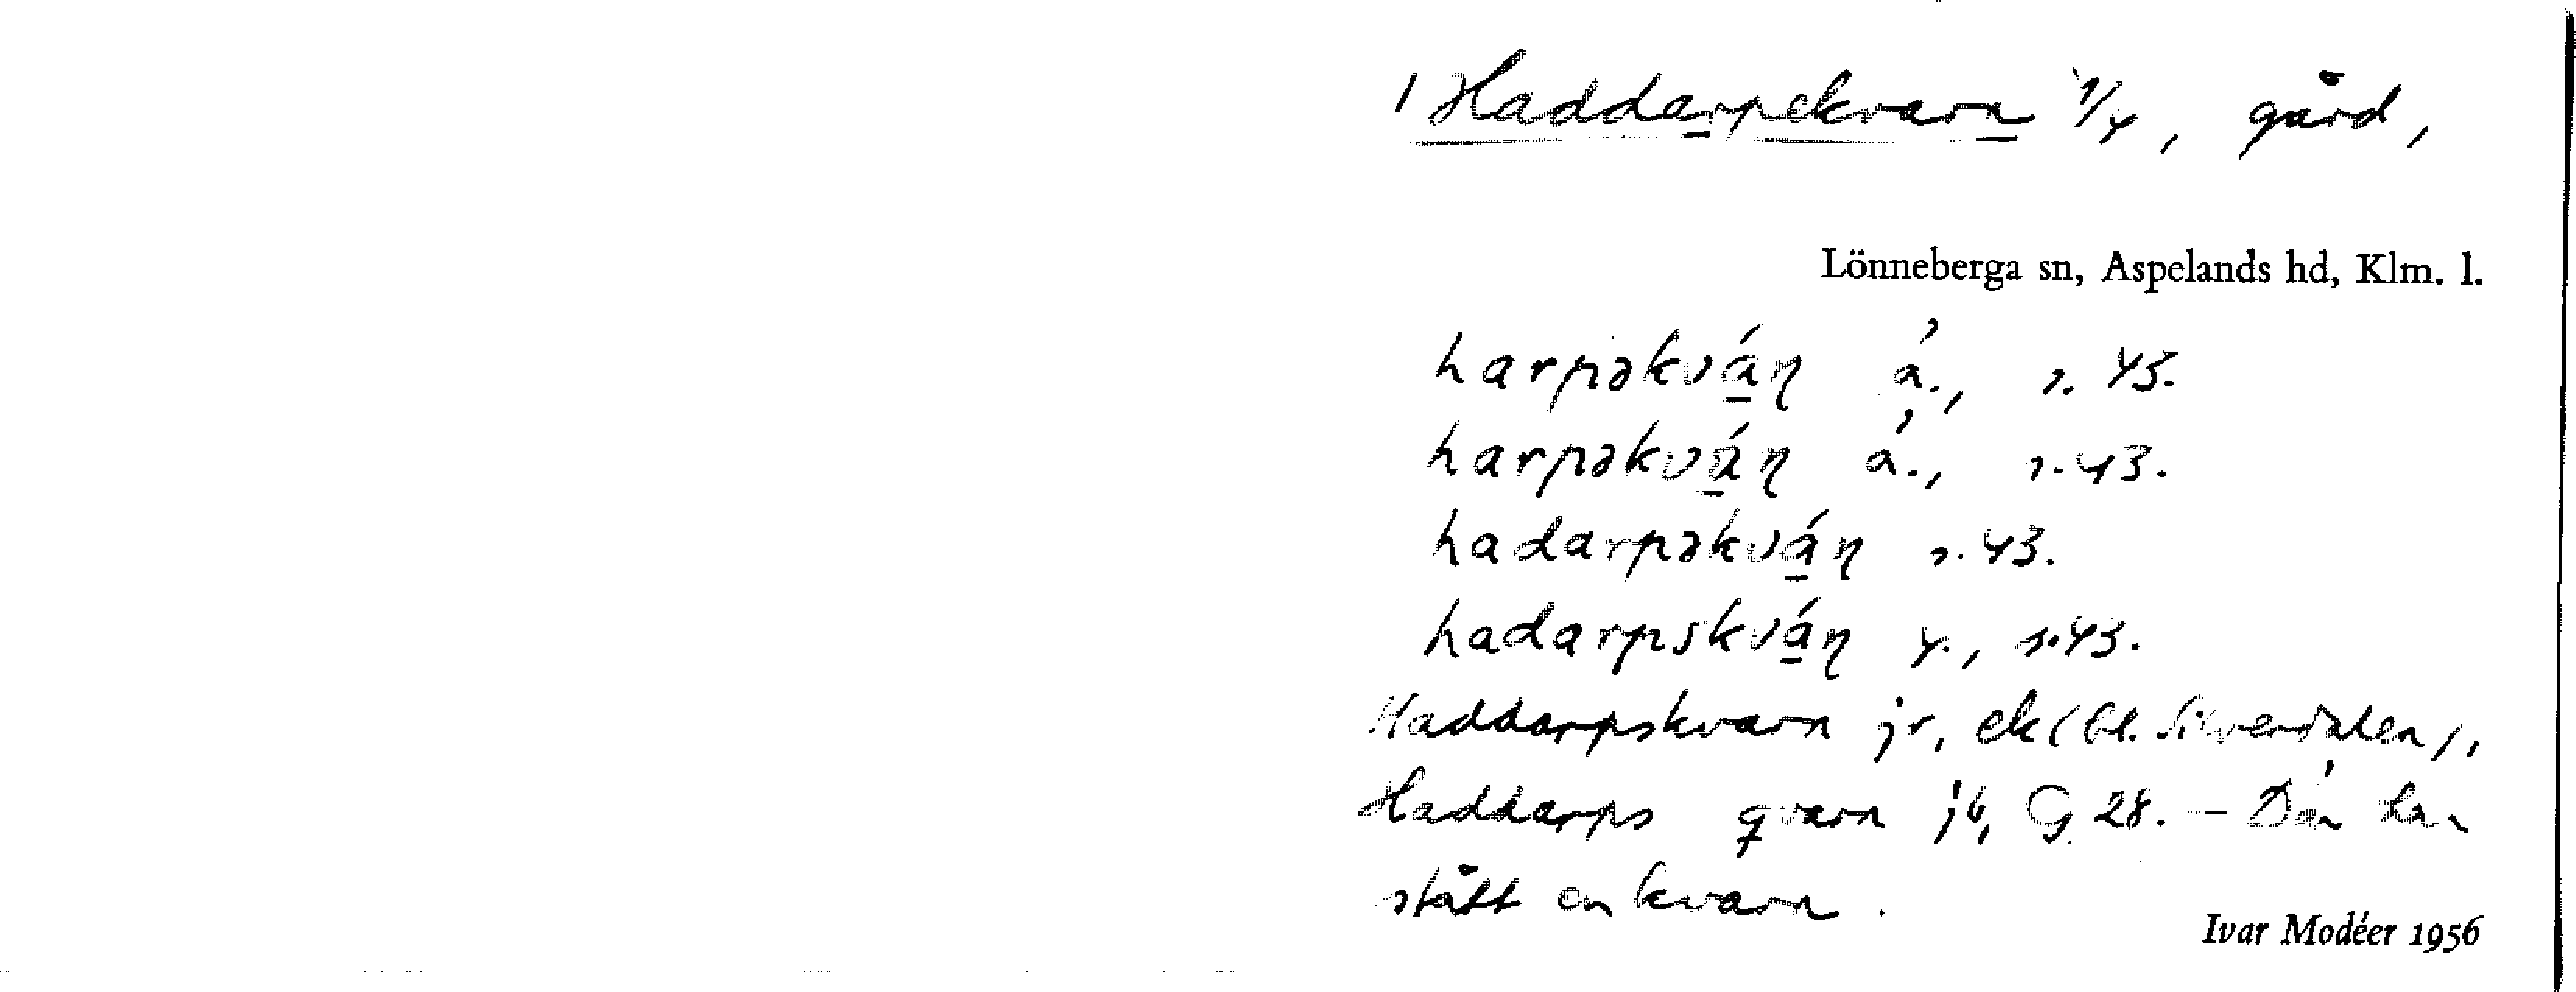 1 Haddarpekvarn 1/4, gård,
Lönneberga sn, Aspelands hd, Klm. l.
harpəkvá̱ꞃ ä́., s. 43.
harpəkvá̱ꞃ ä́., s. 43.
hadarpəkvá̱ꞃ s. 43.
hadarpskvá̱ꞃ y., s. 43.
Haddarpskvarn jr, ek (bl. Silverdalen),
Haddarps qvarn jb, G 28. – Där har
stått en kvarn.
Ivar Modéer 1956